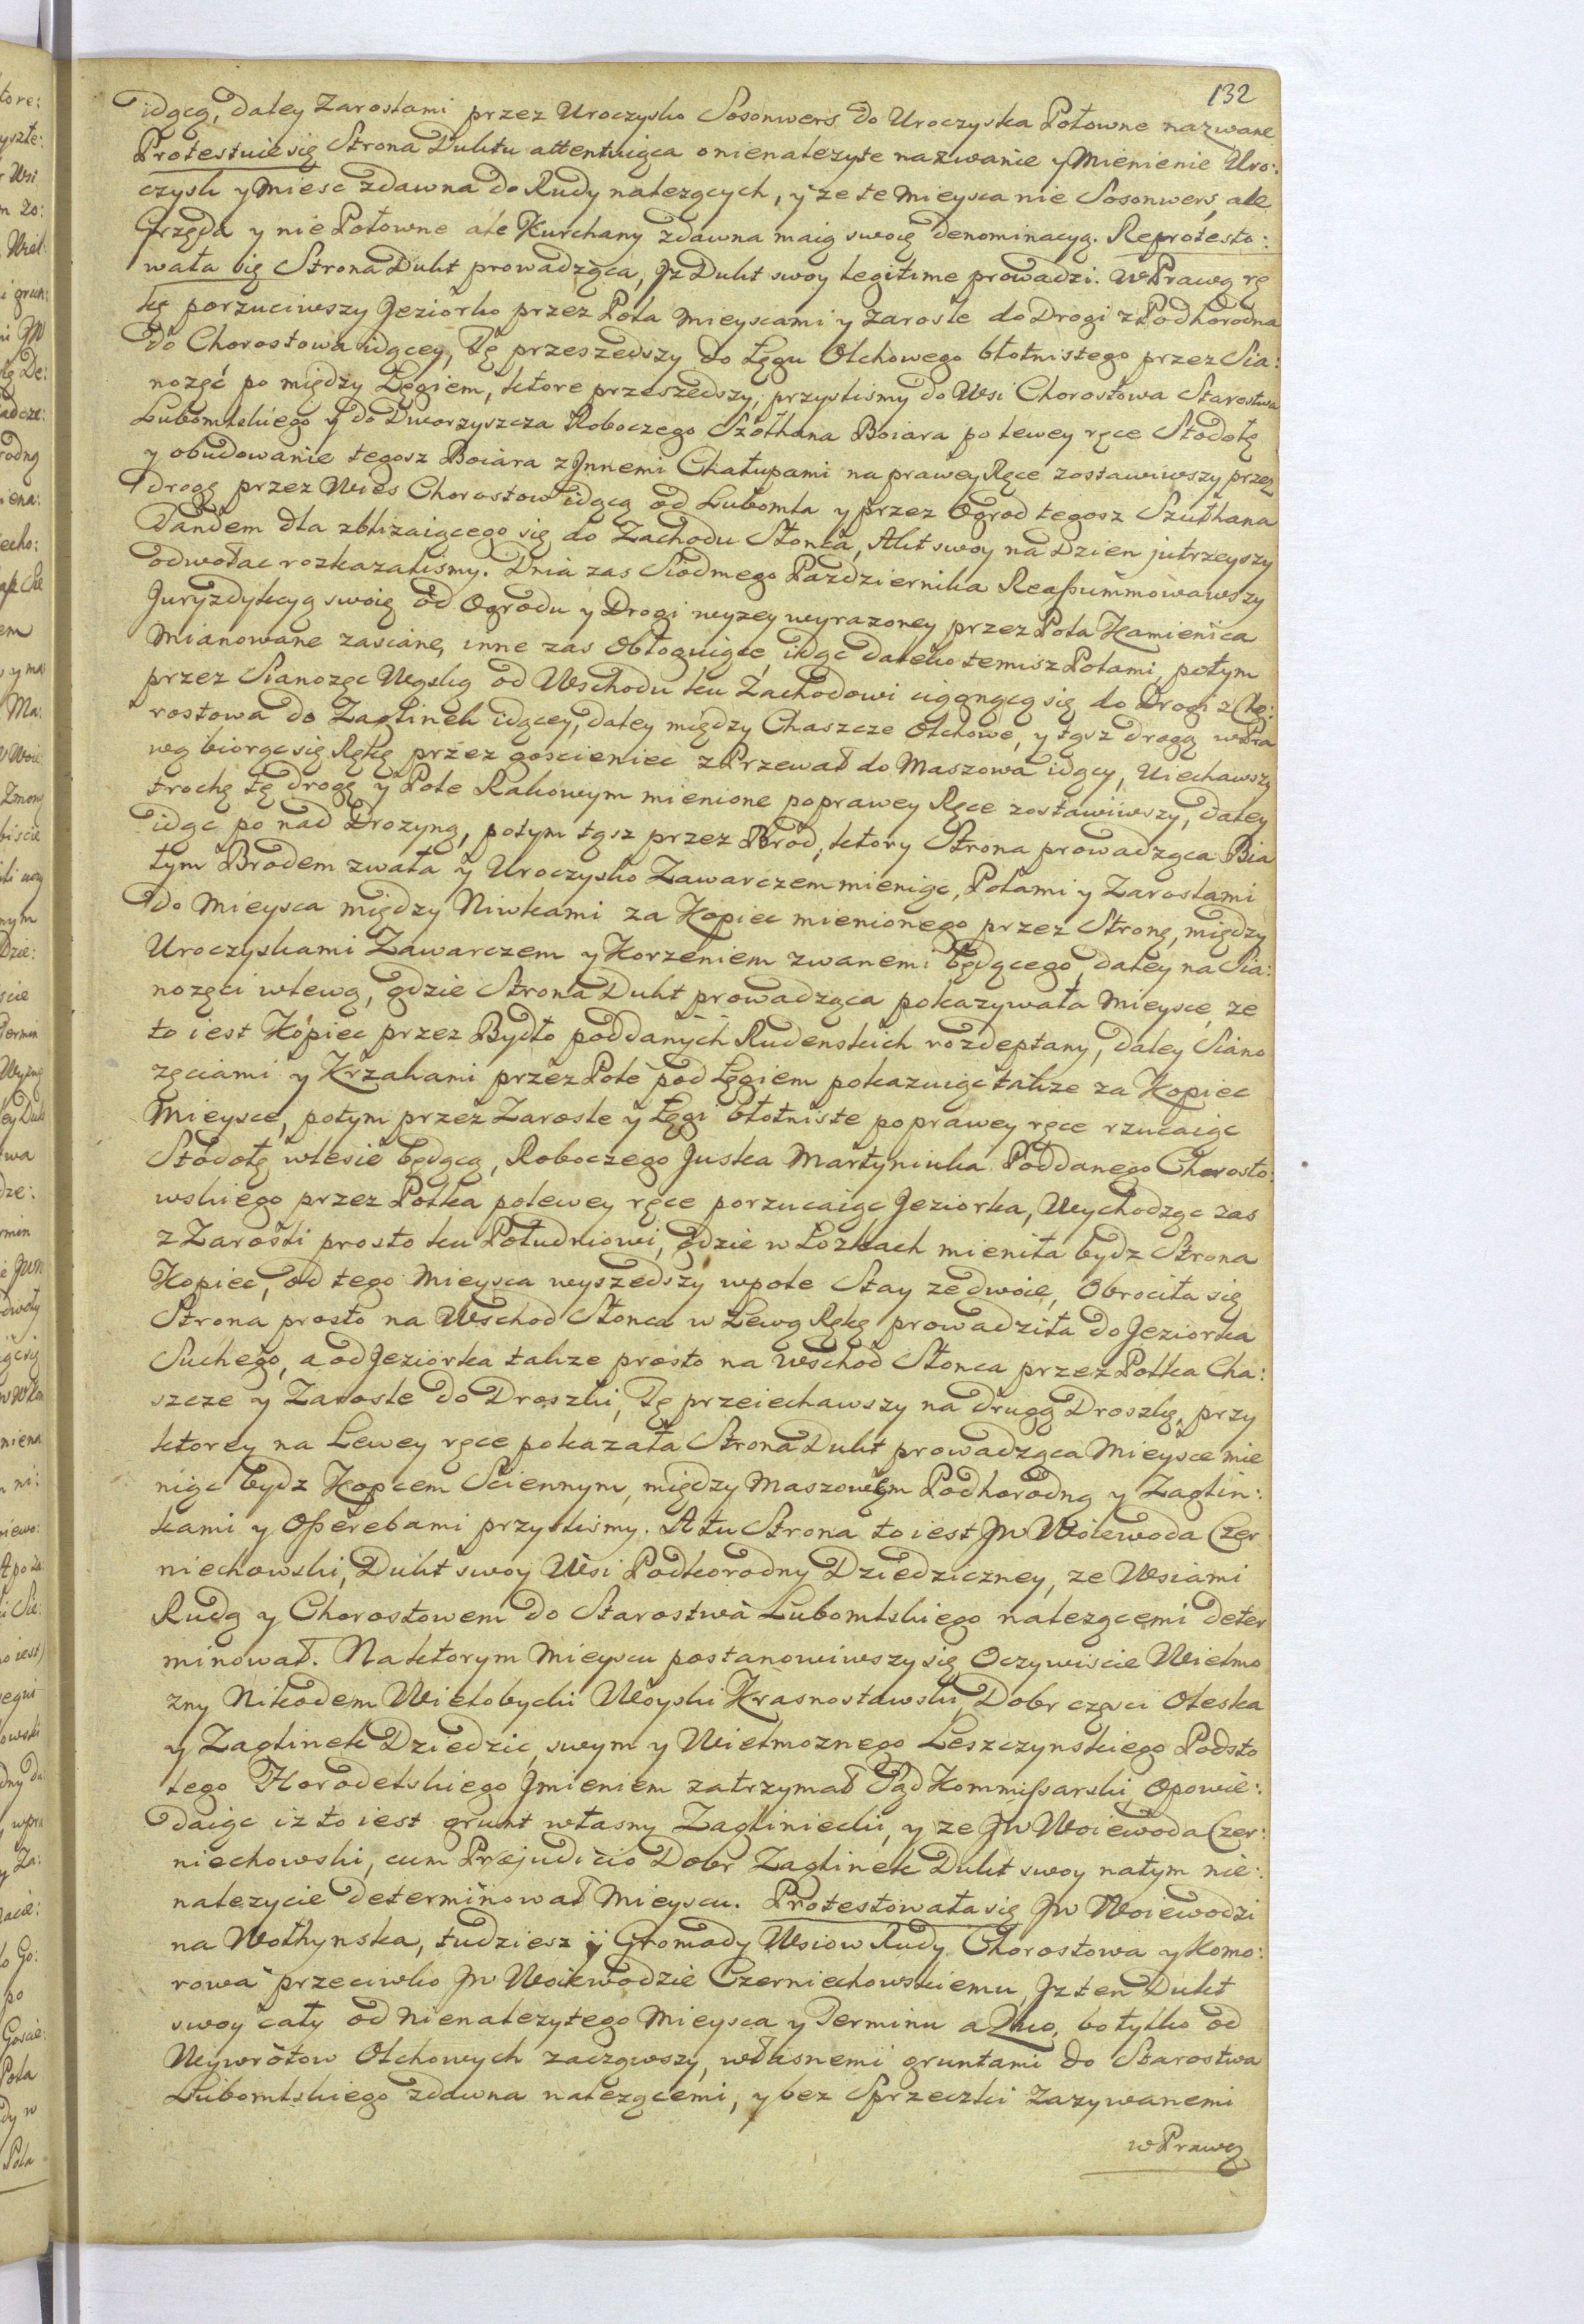 132
idącą, daley Zaroslami przez Uroczysko Sosonwers do Uroczyska Połowne nazwane
Protestuie się Strona Duktu attentuiąca o nienalezyte nazwanie y Mienienie Uro:
czysk y Miesc zdawna do Rudy nalezących, y ze te Mieysca nie Sosonwers, ale
Przęda y nie Połowne ale Kurchany zdawna maią swoię denominacyą. Reprotesto:
wała się Strona Dukt prowadząca, Jż Dukt swoy legitime prowadzi. W Prawą rę
kę porzuciwszy Jeziorko przez Pola Mieyscami y zarosle do Drogi z Podhorodna
do Chorostowa idącey, Tę przeszedszy do Łęgu Olchowego błotnistego przez Sia:
nozęć po między Łęgiem, ktore przeszedszy, przyszlismy do Wsi Chorostowa Starostwa
Lubomlskiego y do Dworzyszcza Roboczego Szołhana Boiara po lewey ręce Stodołę
y obudowanie tegosz Boiara z Jnnemi Chałupami na prawey Ręce zostawiwszy przez
drogę przez Wies Chorostow idącą od Lubomla y przez Ogrod tegosz Szułhana
Tandem dla zblizaiącego się do Zachodu Słonca, Akt swoy na Dzien jutrzeyszy
odwołac rozkazalismy. Dnia zas Siodmego Pazdziernika Reassummowawszy
Juryzdykcyą swoię od Ogrodu y Drogi wyzey wyrazoney przez Pola Kamienica
Mianowane zasiane, inne zas Obłoguiące, idąc daleko temisz Polami, potym
przez Sianozęc Wąską od Wschodu ku Zachodowi ciągnącą się do Drogi z Cho:
rostowa do Zaglinek idącey, daley między Chaszcze Olchowe, y tąsz drogą w Pra
wą biorąc się Rękę przez goscieniec z Przewał do Maszowa idący, Uiechawszy
trochę tę drogę y Pole Rakowym mienione poprawey Ręce zostawiwszy, daley
idąc po nad Drozyną, potym tąsz przez Brod, ktory Strona prowadząca Bia
łym Brodem zwała y Uroczysko Zawarczem mieniąc, Polami y Zaroslami
do Mieysca między Niwkami za Kopiec mienionego przez Stronę, między
Uroczyskami Zawarczem y Korzeniem zwanemi będącego, daley na Sia:
nozęci wlewą, gdzie Strona Dukt prowadząca pokazywała Mieysce, ze
to iest Kopiec przez Bydło poddanych Rudenskich rozdeptany, daley Siano
zęciami y Krzakami przez Pole pod Łęgiem pokazuiąc także za Kopiec
Mieysce, potym przez Zarosle y Łęgi błotniste poprawey ręce rzucaiąc
Stodołę wlesie będącą, Roboczego Juska Martyniuka Poddanego Chorosto:
wskiego przez Polka polewey ręce porzucaiąc Jeziorka, Wychodząc zas
z Zarosli prosto ku Południowi, gdzie w Łozkach mieniła bydz Strona
Kopiec, od tego Mieysca wyszedszy wpole Stay ze dwoie, Obrociła się
Strona prosto na Wschod Słonca w Lewą Rękę prowadziła do Jeziorka
Suchego, a od Jeziorka także prosto na Wschod Słonca przez Polka Cha:
szcze y Zarosle do Droszki, Tę przeiechawszy na drugą Droszkę, przy
ktorey na Lewey ręce pokazała Strona Dukt prowadząca Mieysce mie
niąc bydz Kopcem Sciennym, między Maszowem Podhorodną y Zaglin:
kami y Osserebami przyszlismy. A tu Strona to iest Jw Woiewoda Czer
niechowski, Dukt swoy Wsi Podhorodny Dziedziczney, ze Wsiami
Rudą y Chorostowem do Starostwa Lubomlskiego nalezącemi deter
minował. Na ktorym Mieyscu postanowiwszy się Oczywiscie Wielmo
zny Nikodem Wielobycki Woyski Krasnostawski, Dobr częsci Oleska
y Zaglinek Dziedzic, swym y Wielmoznego Leszczynskiego Podsto
lego Horodelskiego Jmieniem zatrzymał Sąd Kommissarski, Opowie:
daiąc iz to iest grunt własny Zagliniecki, y ze Jw Woiewoda Czer:
niechowski, cum Præjudicio Dobr Zaglinek Dukt swoy natym nie:
nalezycie determinował Mieyscu. Protestowała się Jw Woiewodzi
na Wołhynska, tudziesz y Gromady Wsiow Rudy Chorostowa y Komo:
rowa przeciwko Jw Woiewodzie Czerniechowskiemu, Jz ten Dukt
swoy cały od Nienalezytego Mieysca y Terminu a Quo, bo tylko od
Wywrotow Olchowych zacząwszy, własnemi gruntami do Starostwa
Lubomlskiego zdawna nalezącemi, y bez Sprzeczki Zazywanemi
w Prawą